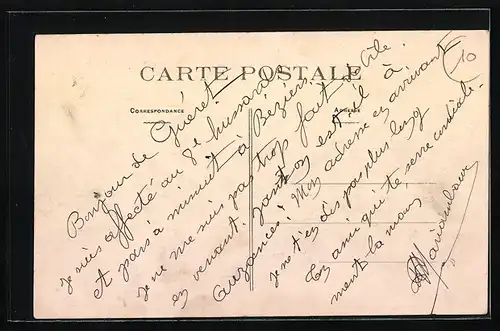 10
CARTE POSTALE
CORRESPONDANCE
ADRESSE
Bonjour de Guéret
je suis affecté au 8e hussards
et pars à minuit à Béziers
je ne me suis pas trop fait de bile
en venant. Janton est-il à
Auzances? Mon adresse en arrivant
je ne t'en dis pas plus long
Ton ami qui te serre cordiale-
ment la main